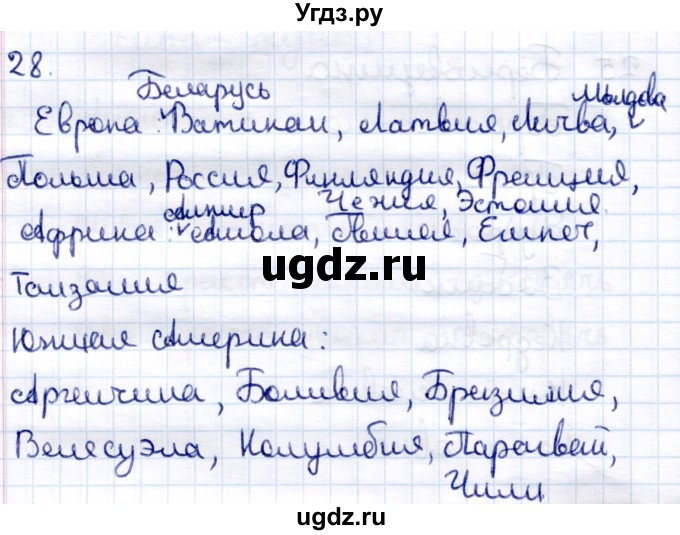 Угдз.ру
28.
Беларусь
Молдова
Европа: Ватикан, Латвия, Литва,
Польша, Россия, Финляндия, Франция,
Чехия, Эстония.
Алжир
Африка: Ангола, Гвинея, Египет,
ugdz.ru
Танзания
Южная Америка:
Аргентина, Боливия, Бразилия,
Венесуэла, Колумбия, Парагвай,
Чили
ugdz.ru